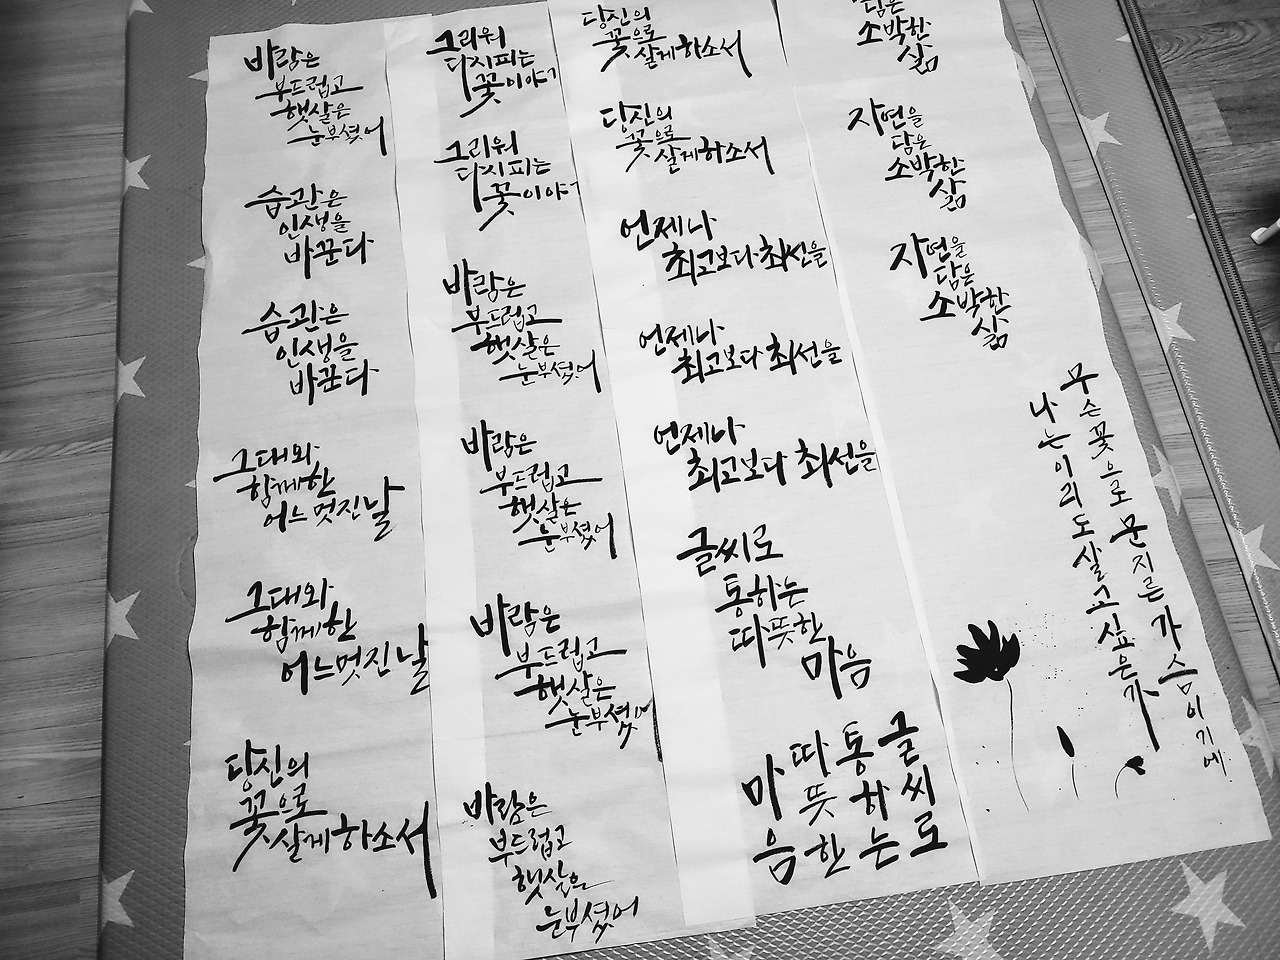 바람은
부드럽고
햇살은
눈부셨어
습관은
인생을
바꾼다
습관은
인생을
바꾼다
그대와
함께한
어느 멋진 날
그대와
함께한
어느 멋진 날
당신의
꽃으로
살게 하소서
그리워
다시 피는
꽃이야기
그리워
다시 피는
꽃이야기
바람은
부드럽고
햇살은
눈부셨어
바람은
부드럽고
햇살은
눈부셨어
바람은
부드럽고
햇살은
눈부셨어
바람은
부드럽고
햇살은
눈부셨어
당신의
꽃으로
살게 하소서
당신의
꽃으로
살게 하소서
언제나
최고보다 최선을
언제나
최고보다 최선을
언제나
최고보다 최선을
글씨로
통하는
따뜻한
마음
글씨로
통하는
따뜻한
마음
담은
소박한
삶
자연을
담은
소박한
삶
자연을
담은
소박한
삶
무슨 꽃으로 문지른 가슴이기에
나는 이리도 살고 싶은가